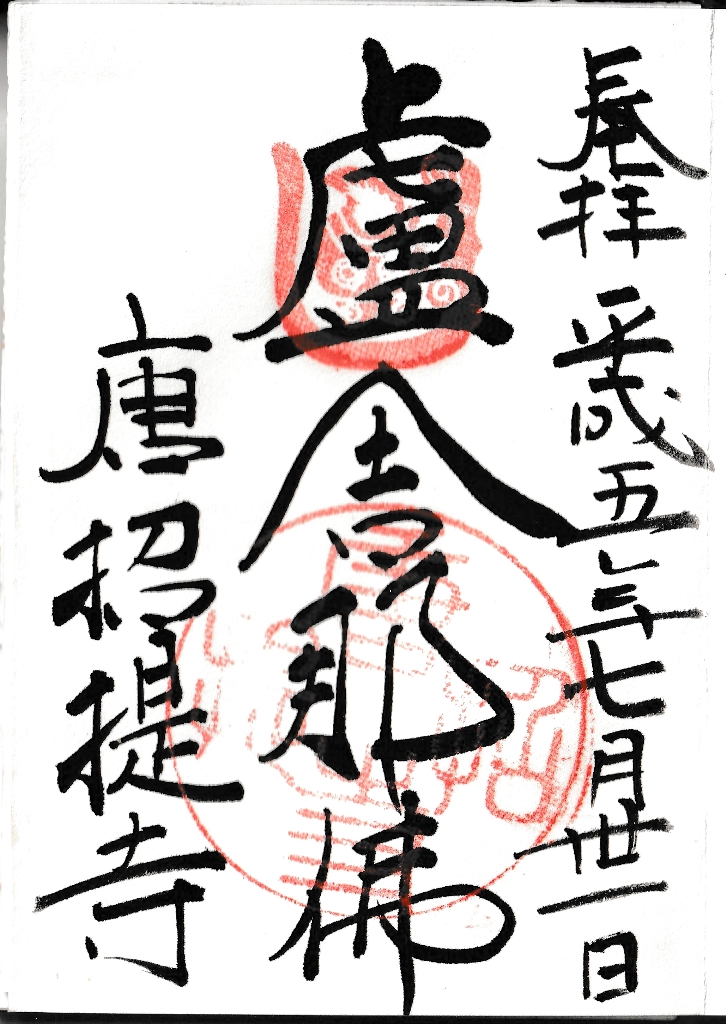 奉拝 平成五年七月卅一日
盧舎那佛
唐招提寺